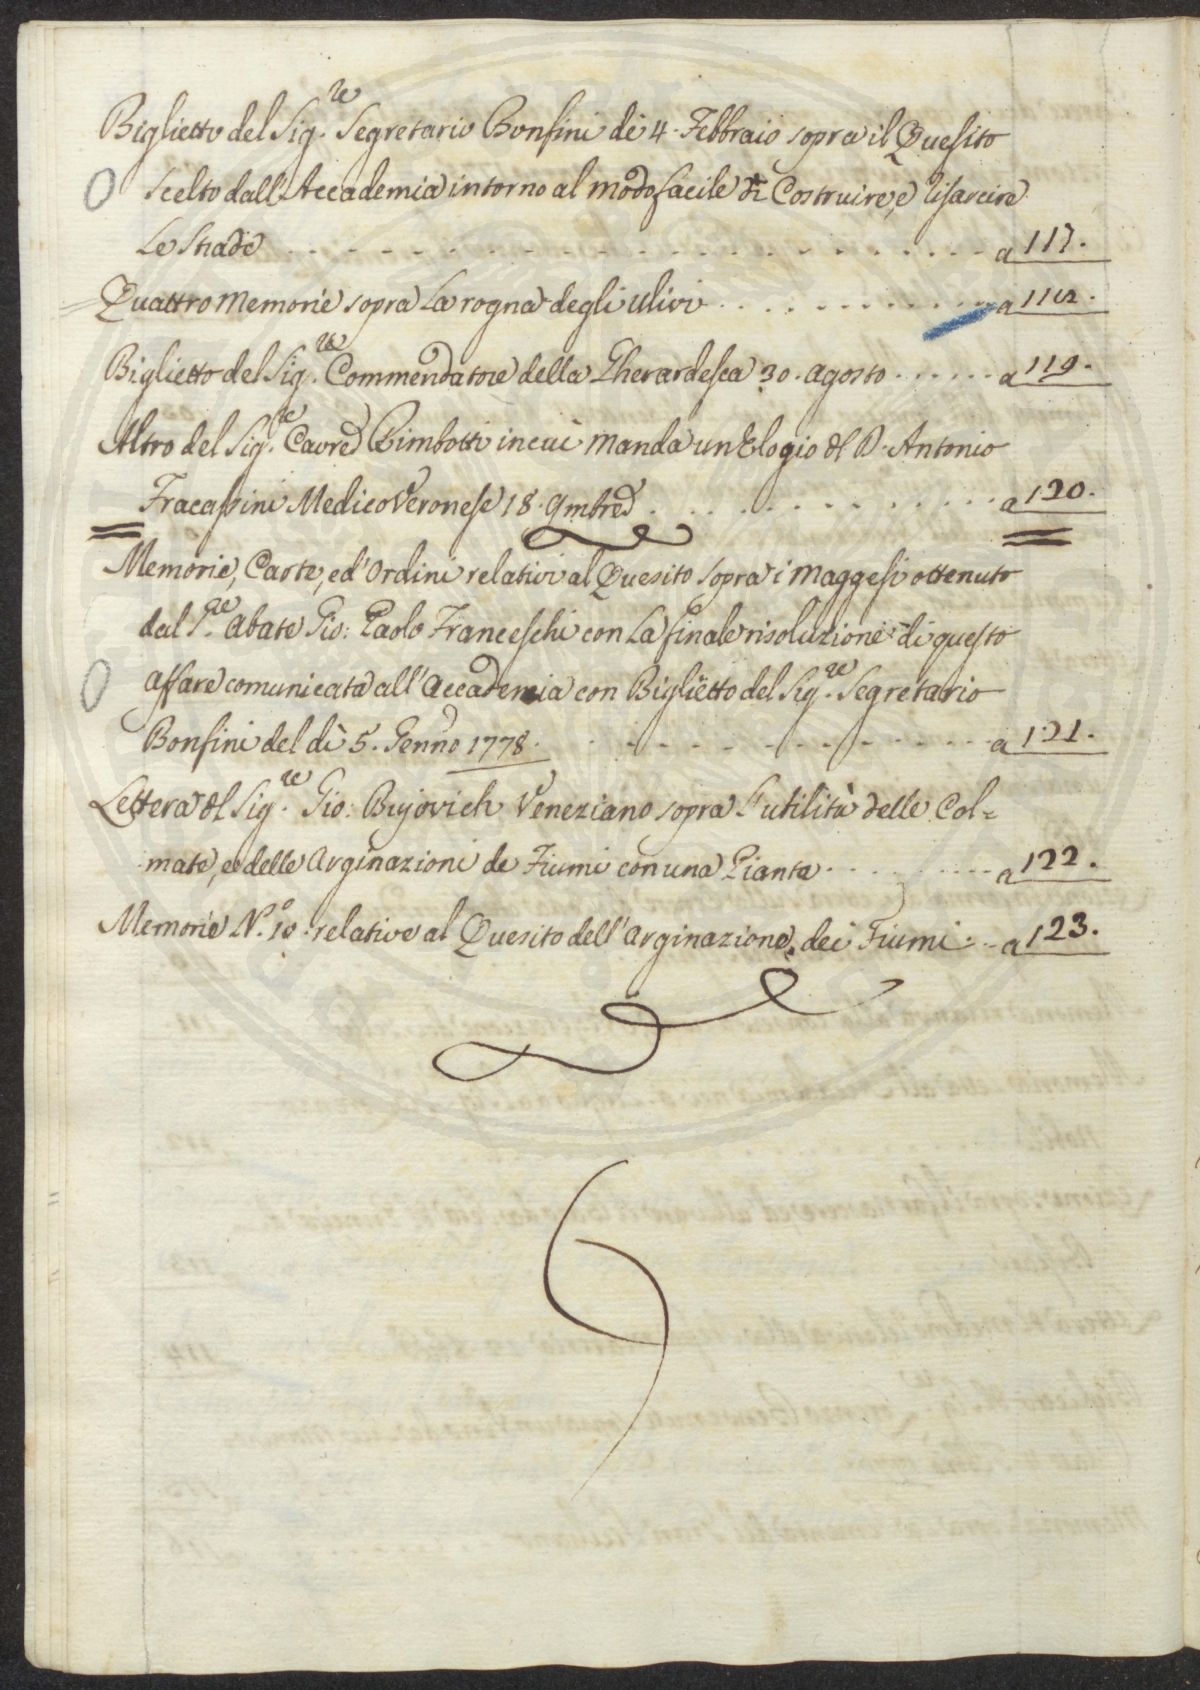 Biglietto del Sig.re Segretario Bonfini de 4. Febbraio sopra il Quesito
scelto dall'Accademia intorno al modo facile di Costruire, e risarcire
Le Strade a 117.
Quattro Memorie sopra La rogna degli ulivi a 118.
Biglietto del Sig.re Commendatore della Gherardesca 30. agosto a 119.
Altro del Sig.re Cavre Bimbotti in cui manda un Elogio del D. Antonio
Fracassini Medico Veronese 18. 9mbre a 120.
Memorie, Carte, ed'Ordini relativi al Quesito sopra i Maggesi ottenuto
dal S.re Abate Gio: Paolo Franceschi con La finale risoluzione di questo
affare comunicata all'Accademia con Biglietto del Sig.re Segretario
Bonfini del dì 5. Genno 1778. a 121.
Lettera del Sig.re Gio: Bujovich Veneziano sopra L'utilità delle Col=
mate, e delle Arginazioni de Fiumi con una Pianta a 122.
Memorie N.o 10. relative al Quesito dell'arginazione dei Fiumi a 123.